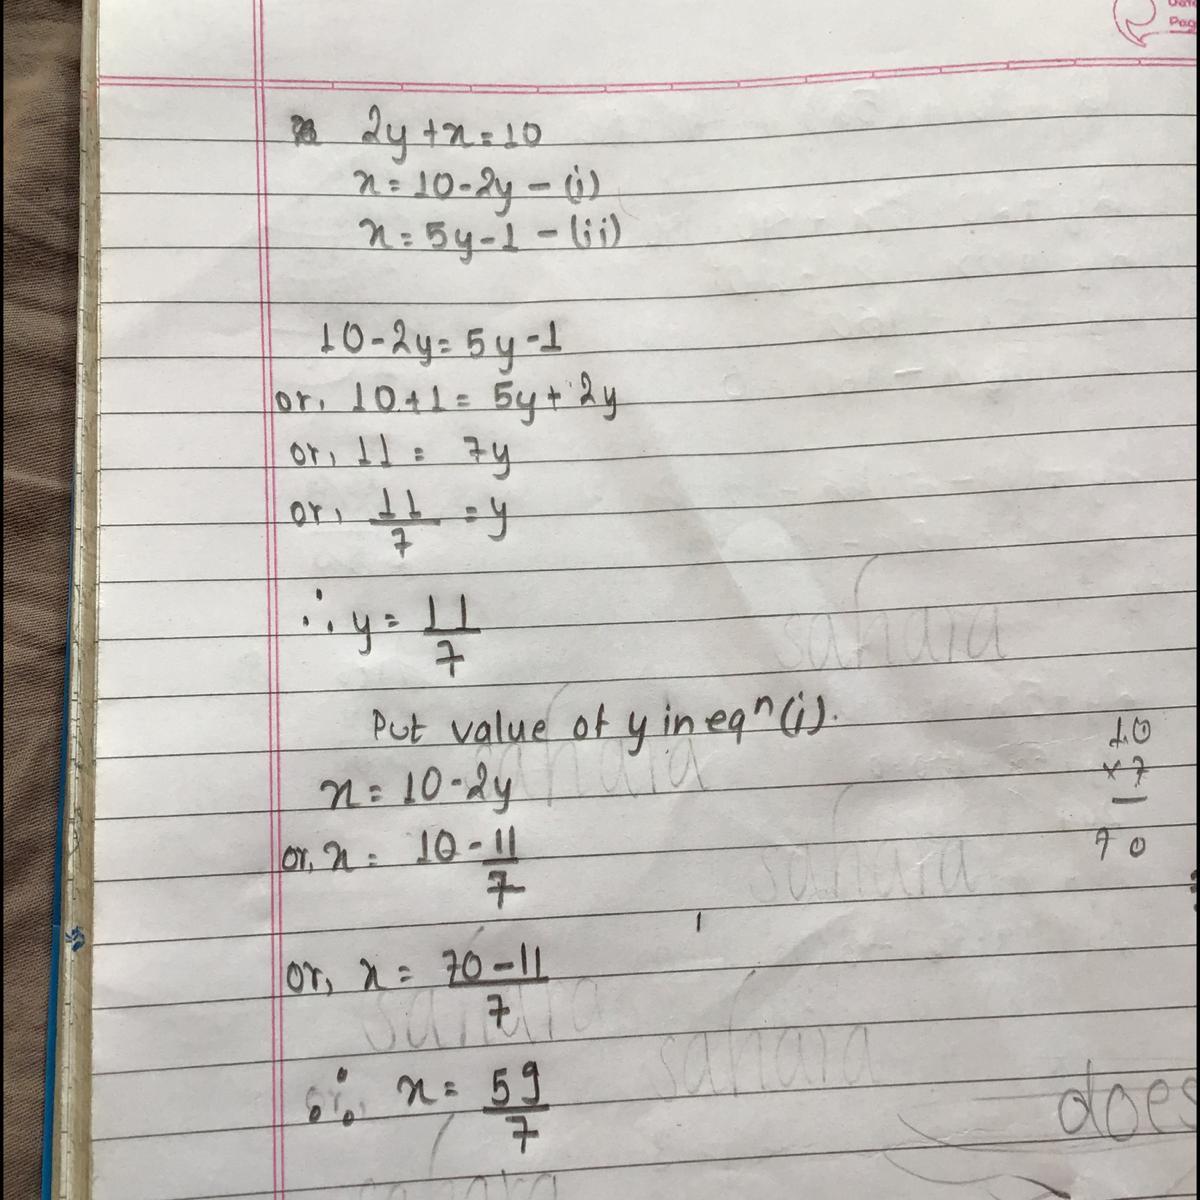 2y + x = 10
x = 10 - 2y - (i)
x = 5y - 1 - (ii)
10 - 2y = 5y - 1
or, 10 + 1 = 5y + 2y
or, 11 = 7y
or, 11/7 = y
∴ y = 11/7
Put value of y in eqⁿ (i).
x = 10 - 2y
or, x = 10 - 11/7
or, x = (70 - 11)/7
∴ x = 59/7
10
× 7
70
sahara
sahara
sahara
sahara
sahara
sahara
does